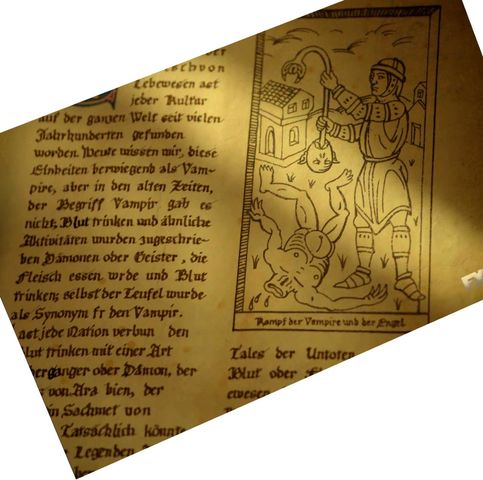 schvon
Lebewesen ast
jeder Kultur
auf der ganzen Welt seit vielen
Jahrhunderten gefunden
worden. Heute wissen wir, diese
Einheiten berwiegend als Vam-
pire, aber in den alten Zeiten,
der Begriff Vampir gab es
nicht; Blut trinken und ähnliche
Aktivitäten wurden zugeschrie-
ben Dämonen oder Geister, die
Fleisch essen wrde und Blut
trinken; selbst der Teufel wurde
als Synonym fr den Vampir.
ast jede Nation verbun den
lut trinken mit einer Art
ergänger oder Dämon, der
von Ara bien, der
in Sachmet von
Tatsächlich könnte
Legenden
Kampf der Vampire und der Engel
Tales der Untoten
Blut oder
ewesen
FX